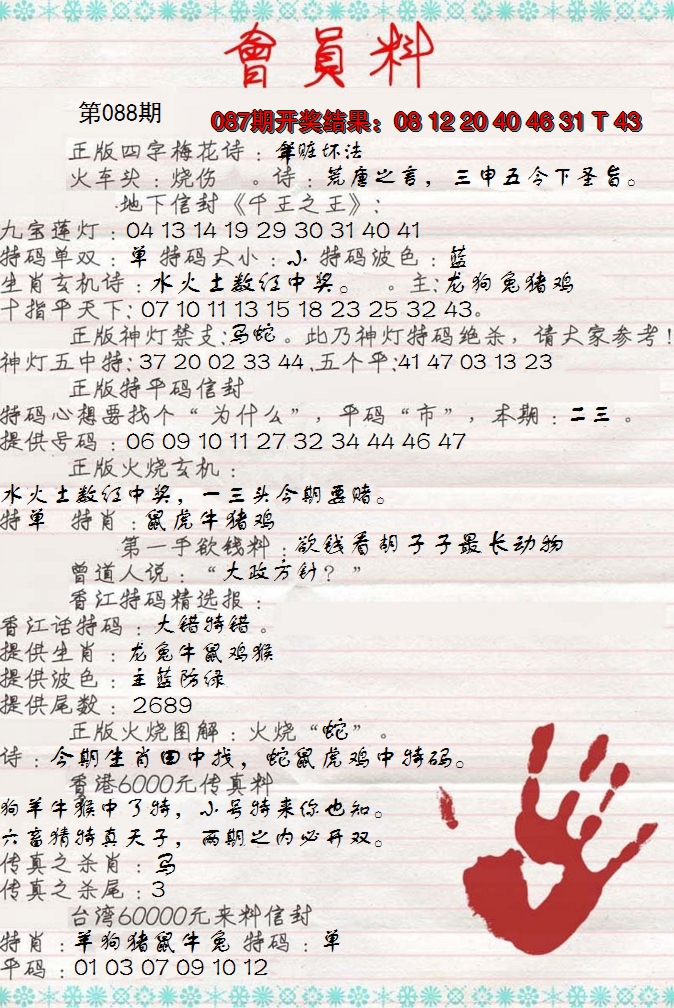 會員料
第088期
087期开奖结果：08 12 20 40 46 31 T 43
正版四字梅花诗：贪赃坏法
火车头：烧伤 。诗：荒唐之言，三申五令下圣旨。
地下信封《千王之王》：
九宝莲灯：04 13 14 19 29 30 31 40 41
特码单双：单 特码大小：小 特码波色：蓝
生肖玄机诗：水火土数红中奖。 。主：龙狗兔猪鸡
十指平天下：07 10 11 13 15 18 23 25 32 43。
正版神灯禁支：马蛇。此乃神灯特码绝杀，请大家参考！
神灯五中特：37 20 02 33 44 .五个平：41 47 03 13 23
正版特平码信封
特码心想要找个“为什么”，平码“市”，本期：二三 。
提供号码：06 09 10 11 27 32 34 44 46 47
正版火烧玄机：
水火土数红中奖，一三头今期要赌。
特单 特肖：鼠虎牛猪鸡
第一手欲钱料：欲钱看胡子子最长动物
曾道人说：“大政方针？”
香江特码精选报：
香江话特码：大错特错。
提供生肖：龙兔牛鼠鸡猴
提供波色：主蓝防绿
提供尾数：2689
正版火烧图解：火烧“蛇”。
诗：今期生肖田中找，蛇鼠虎鸡中特码。
香港6000元传真料
狗羊牛猴中了特，小号特来你也知。
六畜猜特真天子，两期之内必开双。
传真之杀肖：马
传真之杀尾：3
台湾60000元来料信封
特肖：羊狗猪鼠牛兔 特码：单
平码：01 03 07 09 10 12